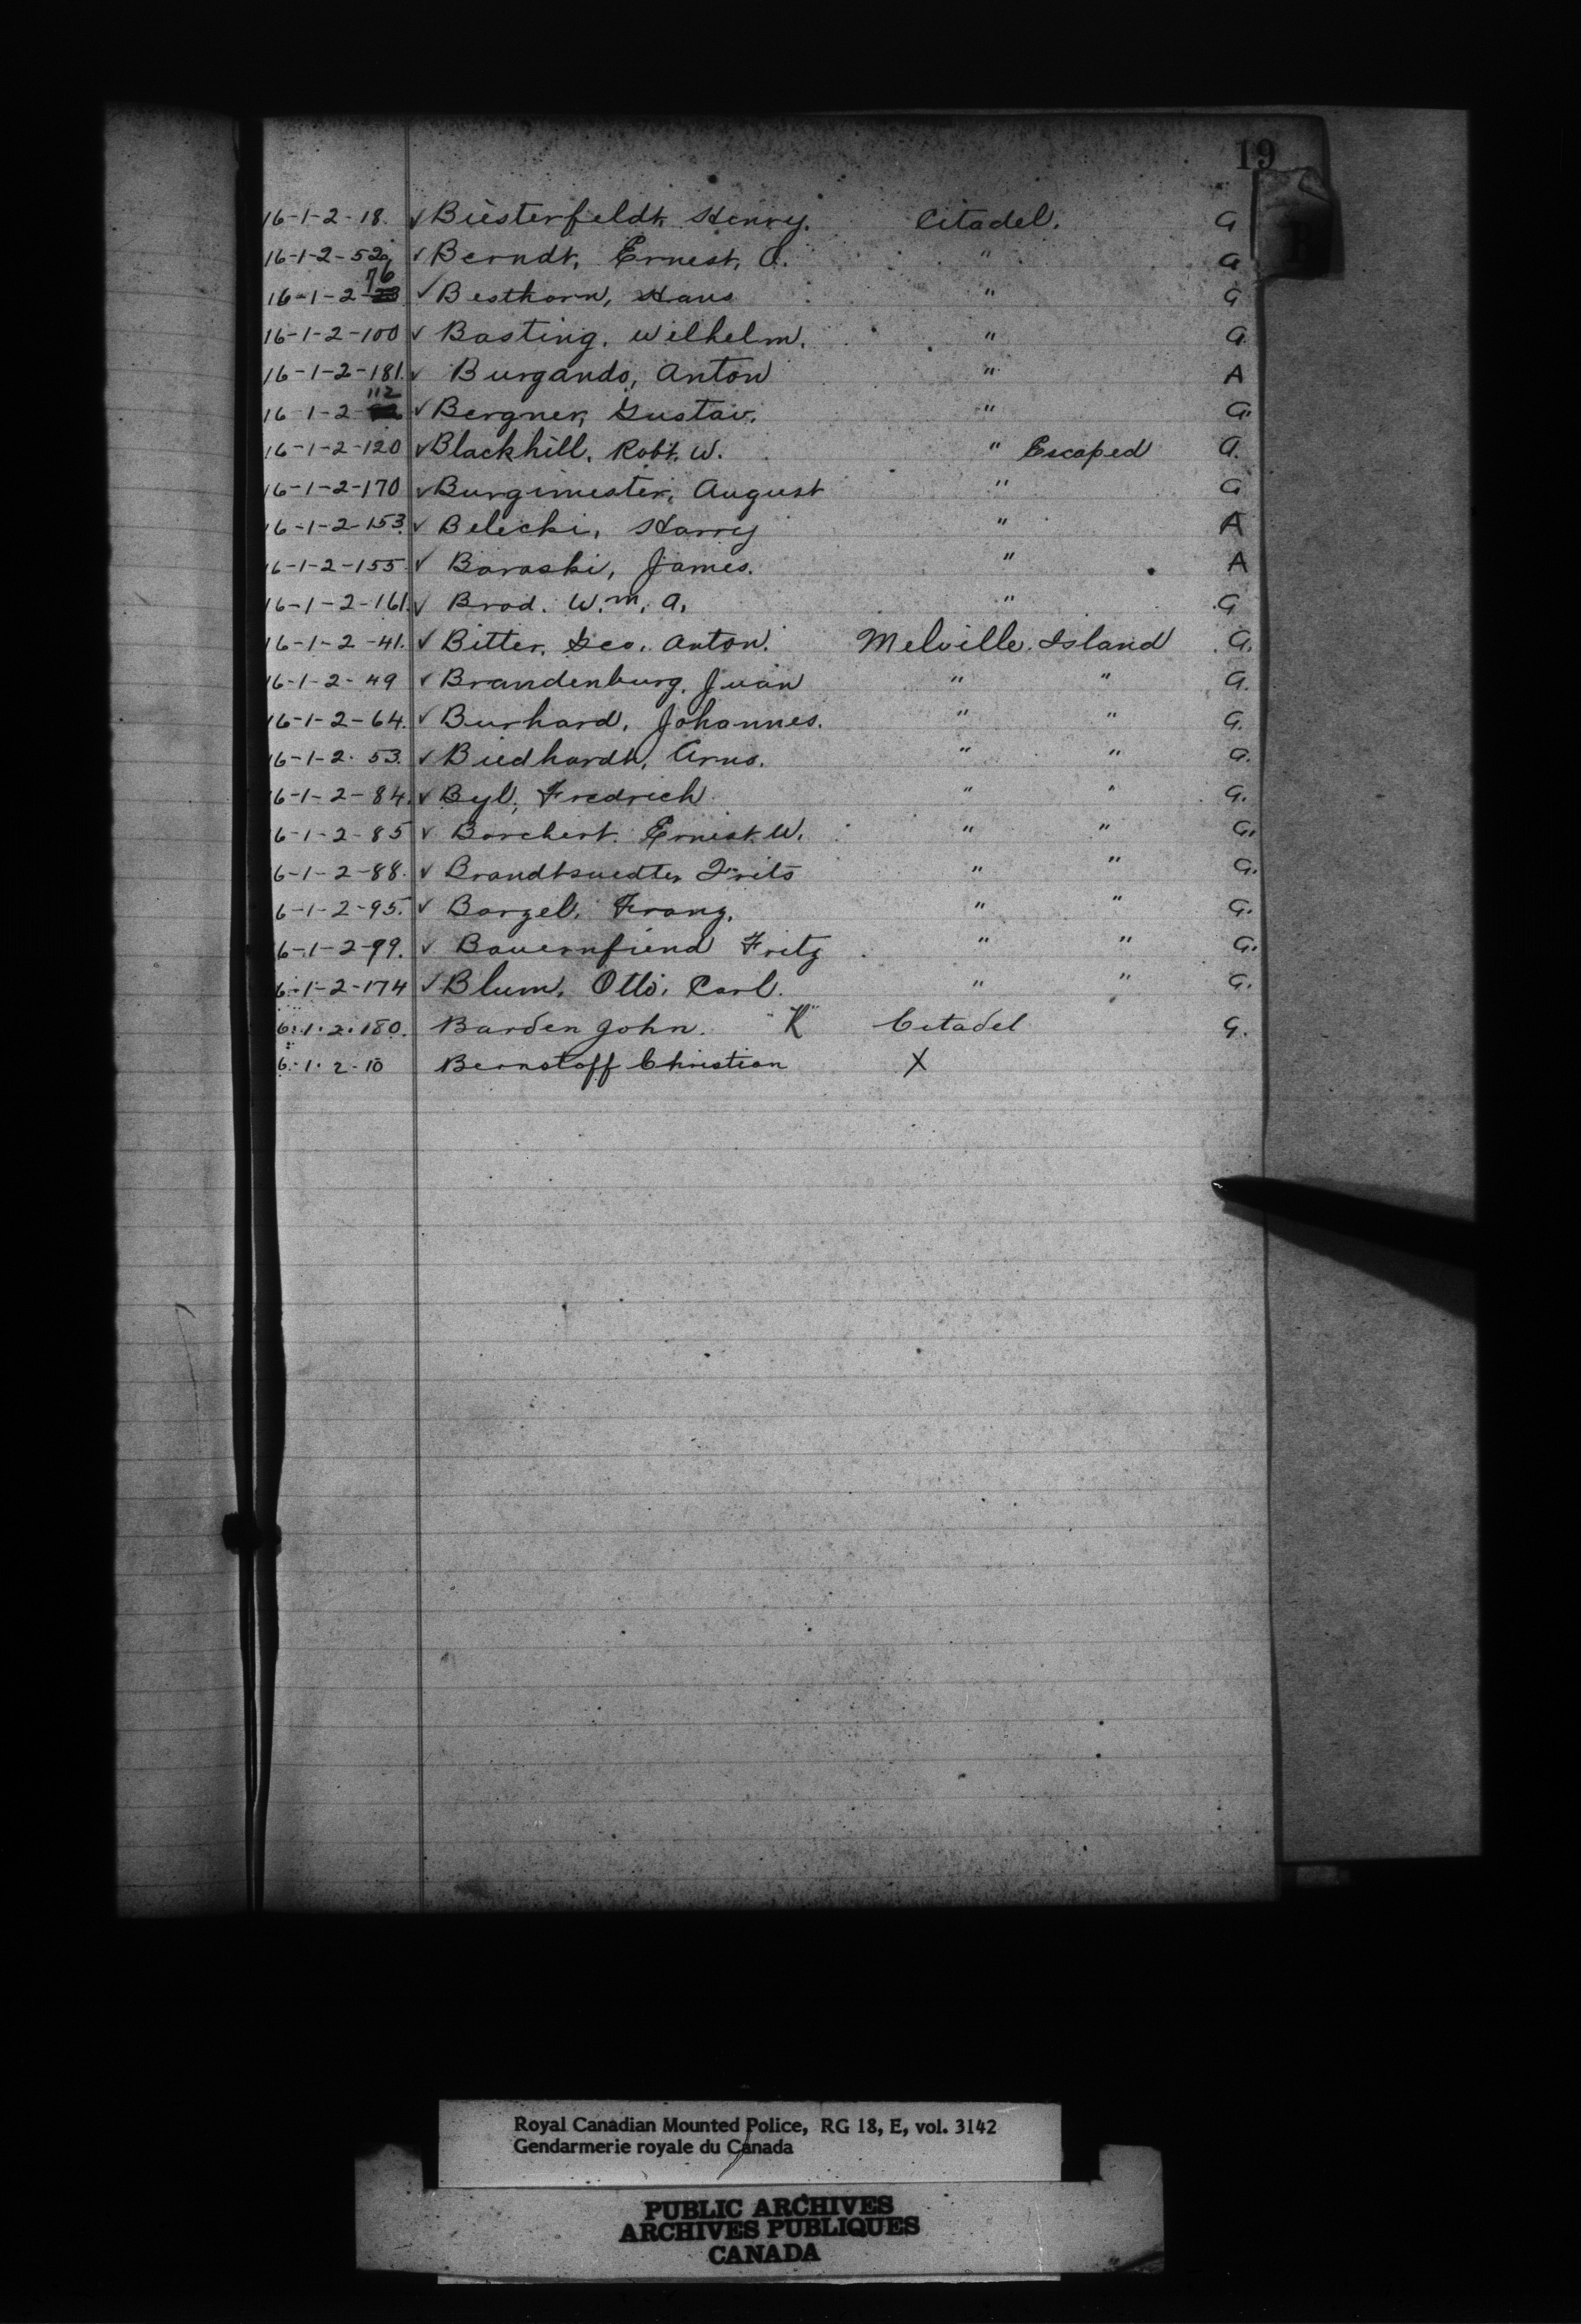 19
B
16-1-2-18. ✓ Biesterfeldt, Henry. Citadel. G
16-1-2-52a ✓ Berndt, Ernest, O. " G
16-1-2-76 ✓ Besthorn, Hans " G
16-1-2-100 ✓ Basting, Wilhelm. " G
16-1-2-181. ✓ Burgando, Anton " A
16-1-2-112 ✓ Bergner, Gustav. " G.
16-1-2-120 ✓ Blackhill, Robt. W. " Escaped G.
16-1-2-170 ✓ Burgimester, August " G
16-1-2-153. ✓ Belecki, Harry " A
16-1-2-155. ✓ Baraski, James. " A
16-1-2-161. ✓ Brod. Wm. A. " G
16-1-2-41. ✓ Bitter, Geo. Anton. Melville Island G.
16-1-2-49 ✓ Brandenburg, Juan " " G.
16-1-2-64. ✓ Burhard, Johannes. " " G.
16-1-2-53. ✓ Biedhardt, Arno. " " G.
16-1-2-84. ✓ Byl, Fredrich " " G.
6-1-2-85 ✓ Borchert. Ernest. W. " " G.
6-1-2-88. ✓ Frits " " G.
6-1-2-95. ✓ Barzel, Franz. " " G.
6-1-2-99. ✓ Bauernfiend Fritz " " G.
6-1-2-174 ✓ Blum, Otto, Carl. " " G.
6.1.2.180. Barden John. "K" Citadel G.
6.1.2-10 Bernstoff Christian X
Royal Canadian Mounted Police, RG 18, E, vol. 3142
Gendarmerie royale du Canada
PUBLIC ARCHIVES
ARCHIVES PUBLIQUES
CANADA